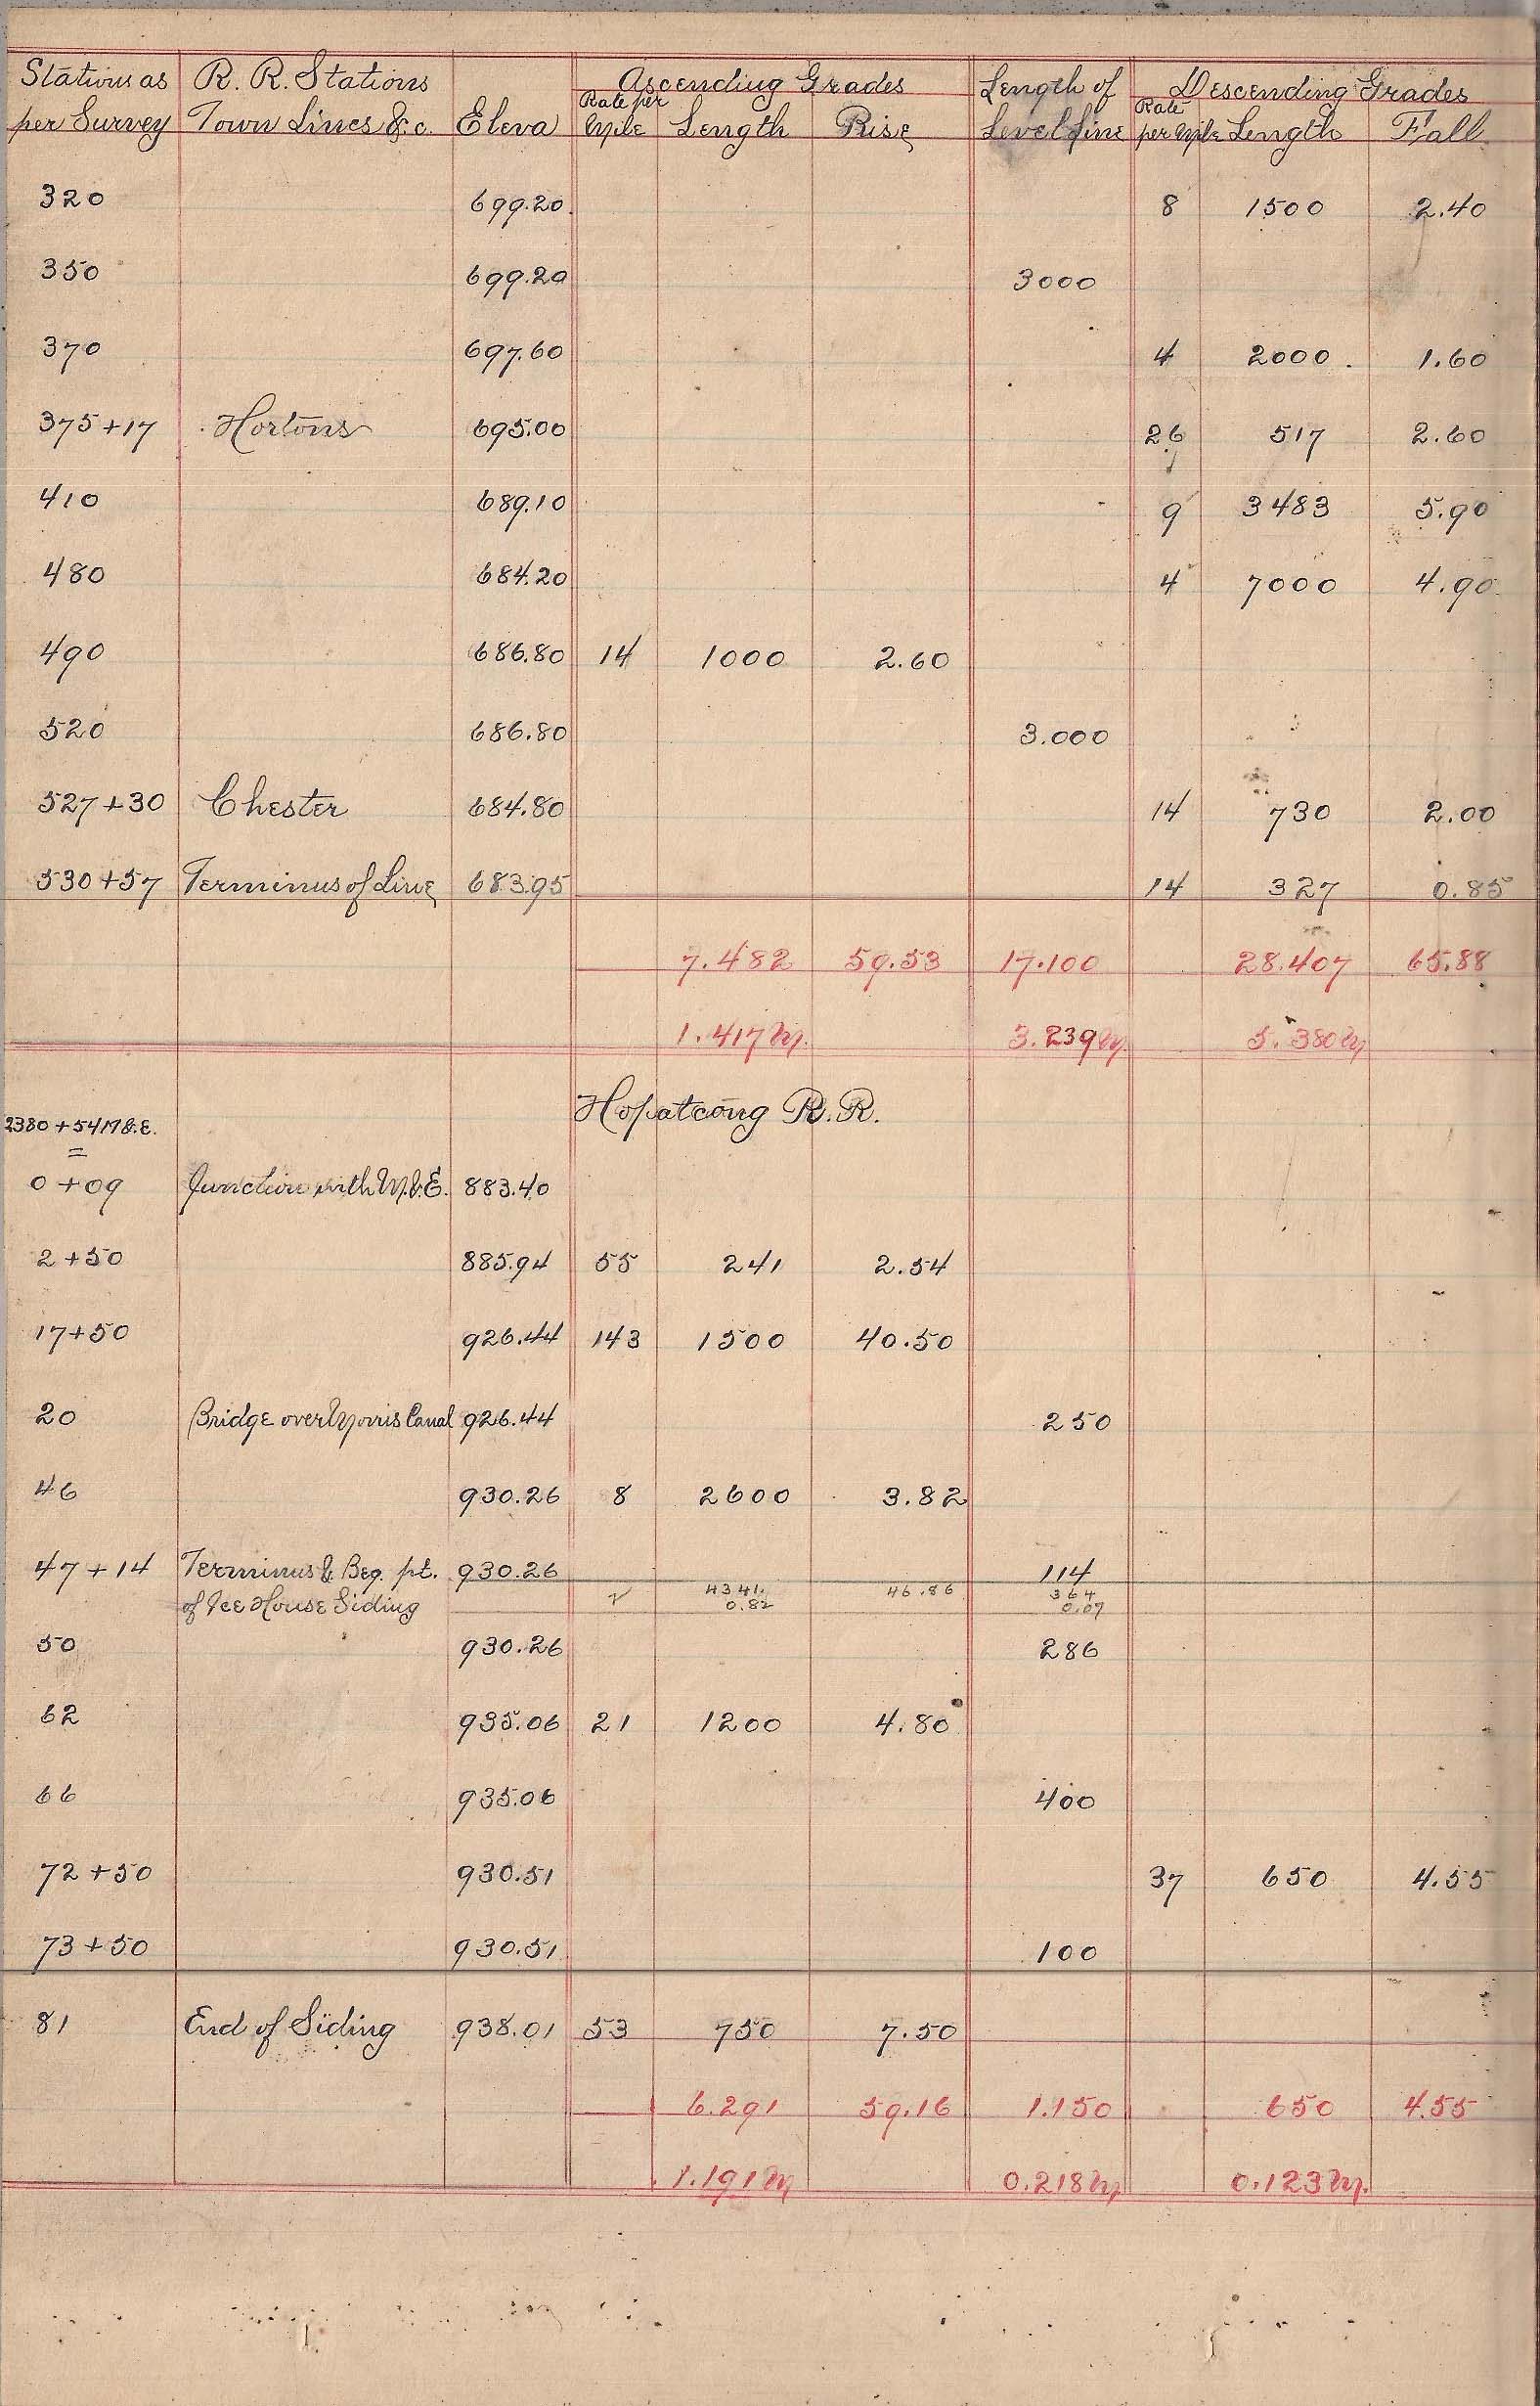 Stations as R. R. Stations Ascending Grades Length of Descending Grades
per Survey Town Lines &c. Eleva Rate per Mile Length Rise Level Line Rate per Mile Length Fall
320 699.20 8 1500 2.40
350 699.20 3000
370 697.60 4 2000 1.60
375+17 Hortons 695.00 26 517 2.60
410 689.10 9 3483 5.90
480 684.20 4 7000 4.90
490 686.80 14 1000 2.60
520 686.80 3.000
527+30 Chester 684.80 14 730 2.00
530+57 Terminus of Line 683.95 14 327 0.85
7.482 59.53 17.100 28.407 65.88
1.417 M. 3.239 M. 5.380 M
Hopatcong R.R.
2380+54 M&E.
=
0+09 Junction with M.&E. 883.40
2+50 885.94 55 241 2.54
17+50 926.44 143 1500 40.50
20 Bridge over Morris Canal 926.44 250
46 930.26 8 2600 3.82
47+14 Terminus & Beg. pt. 930.26 114
of Ice House Siding 4341. 46.86 364
0.82 0.07
50 930.26 286
62 935.06 21 1200 4.80
66 935.06 400
72+50 930.51 37 650 4.55
73+50 930.51 100
81 End of Siding 938.01 53 750 7.50
6.291 59.16 1.150 650 4.55
1.191 M 0.218 M 0.123 M.